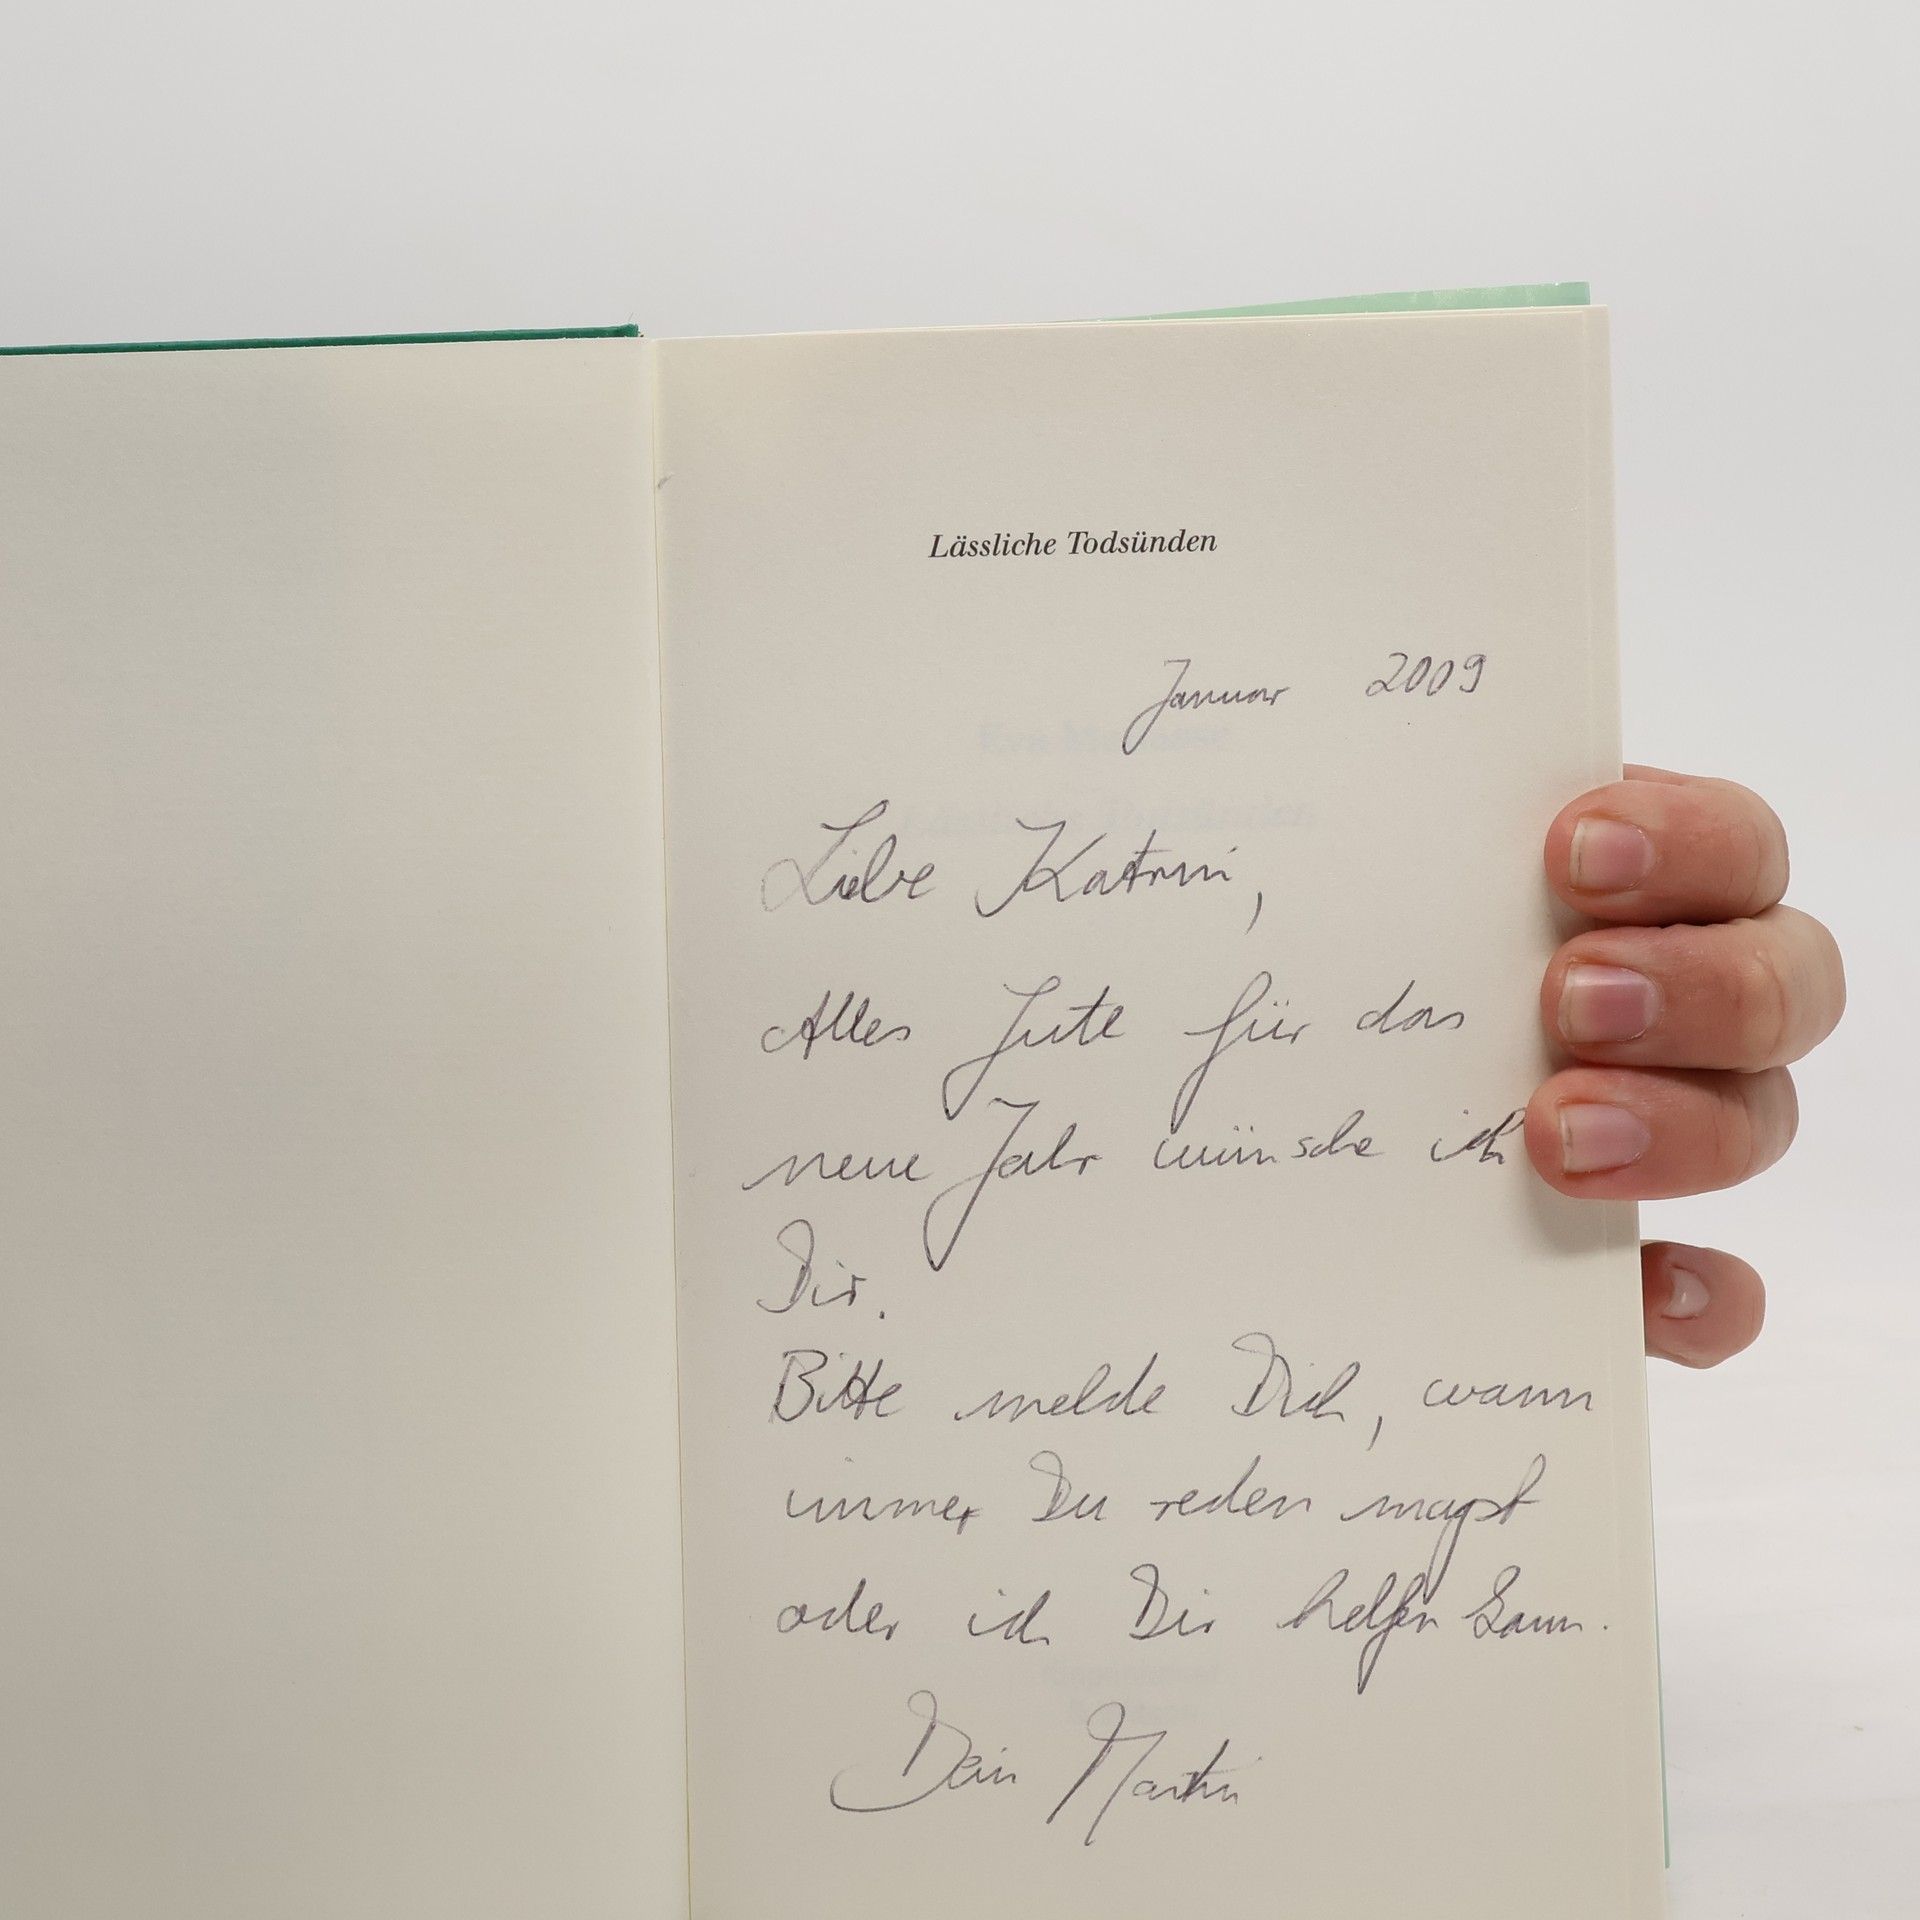 Lässliche Todsünden
Januar 2009
Liebe Katrin,
Alles Gute für das
neue Jahr wünsche ich
Dir.
Bitte melde Dich, wann
immer Du reden magst
oder ich Dir helfen kann.
Dein Martin